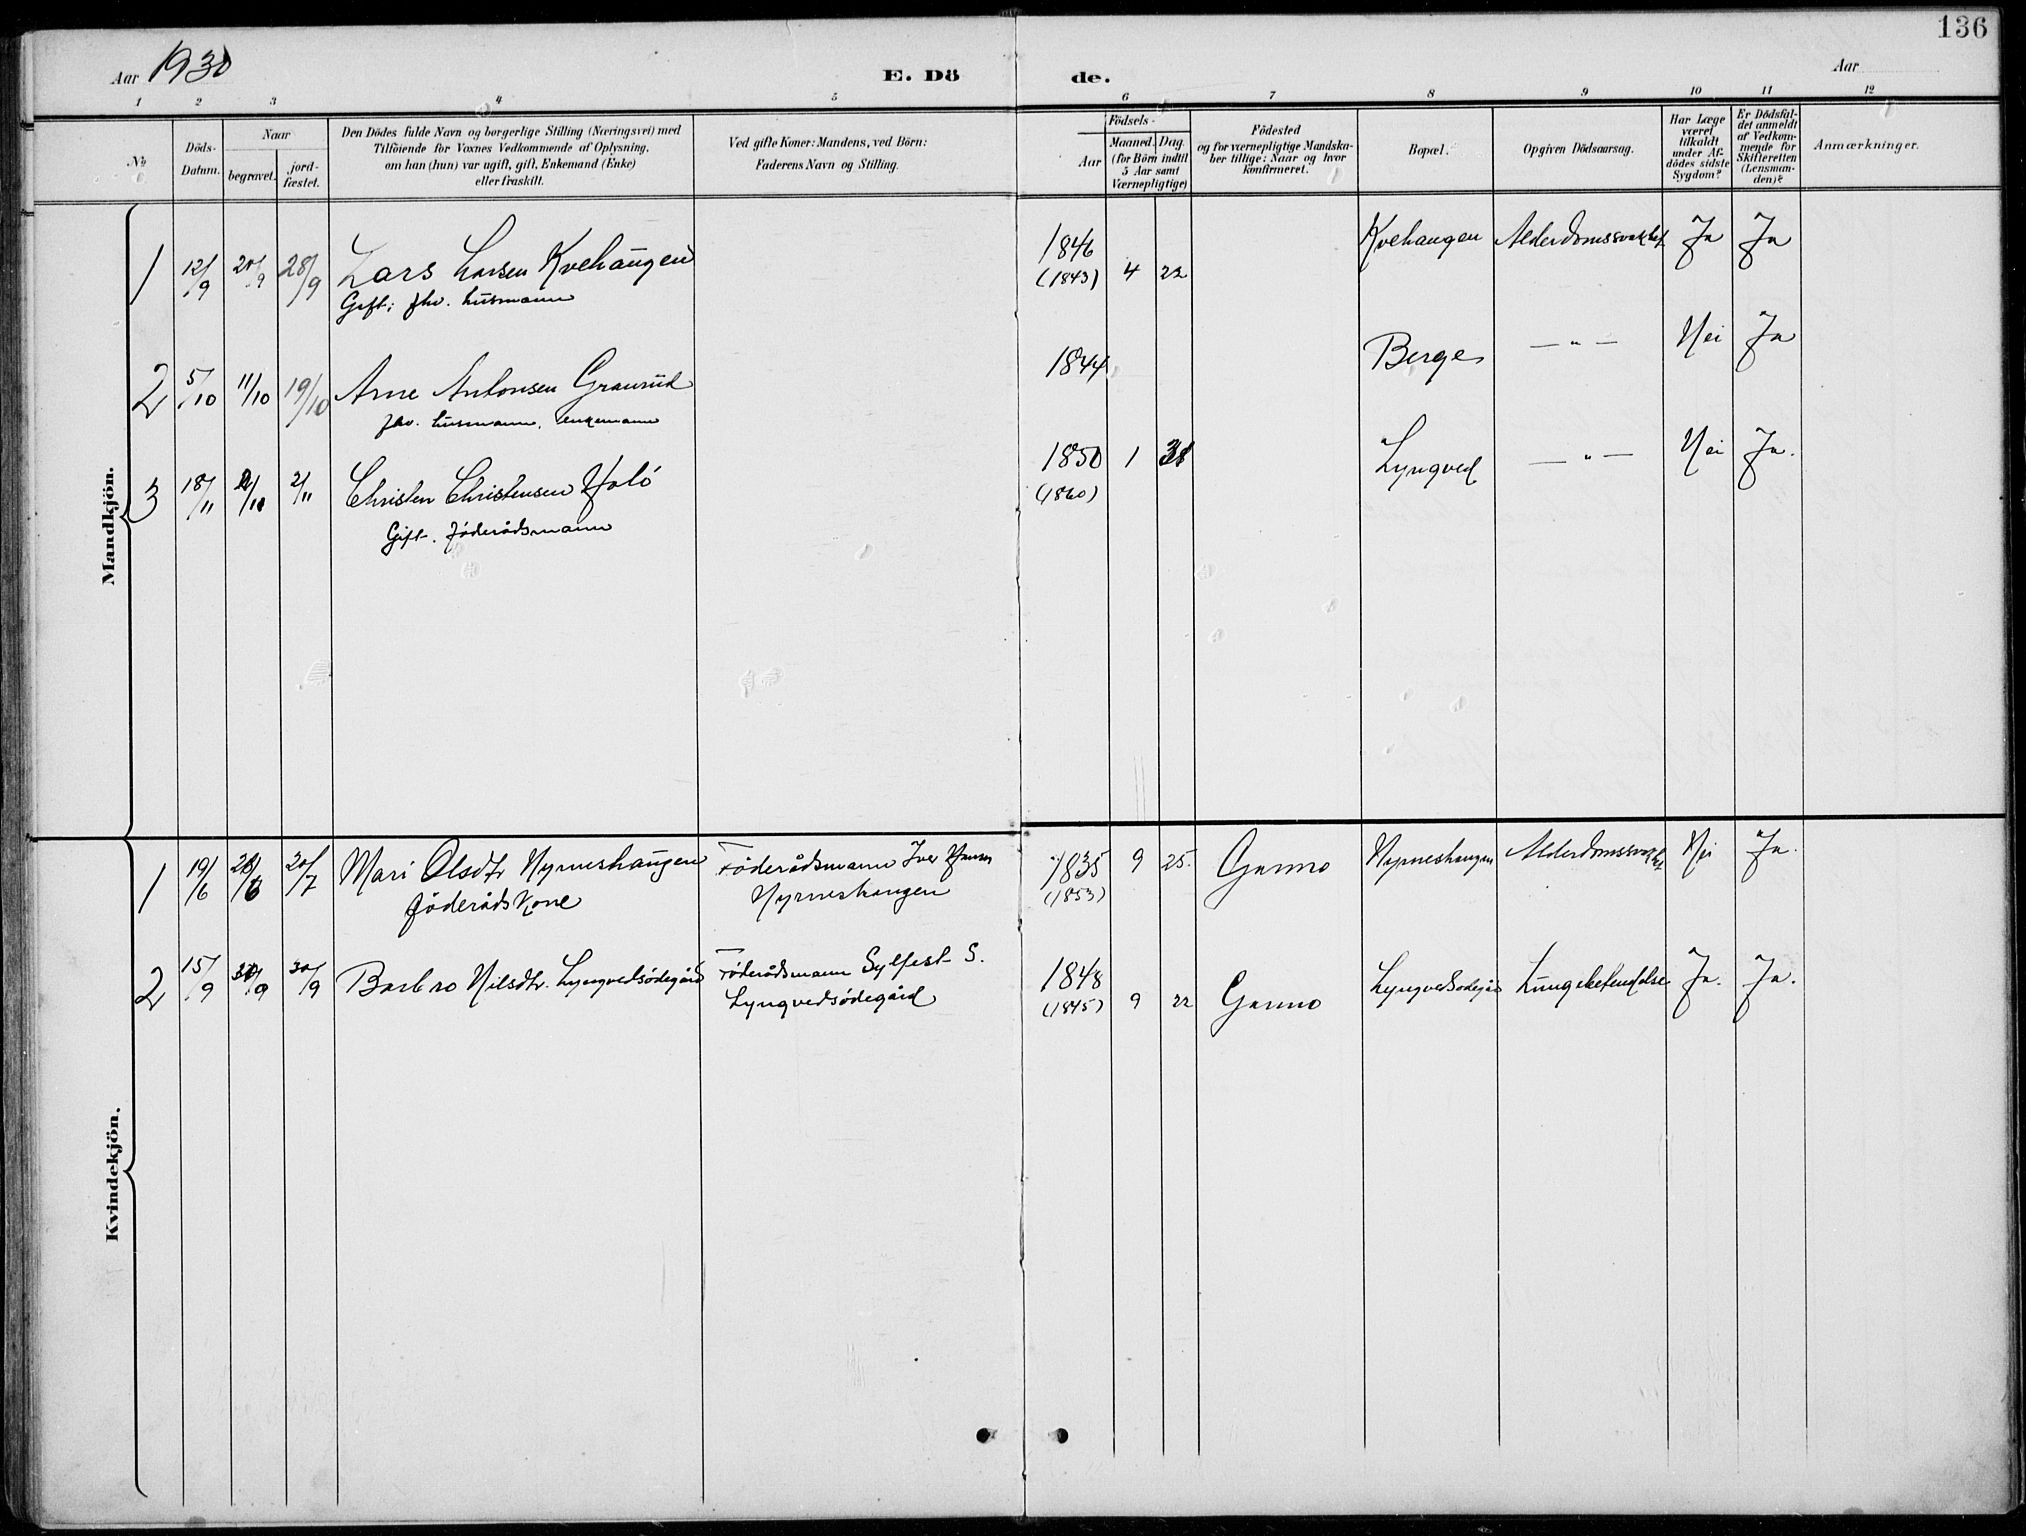 136
Aar 1930
E. Dö de.
Aar
1 2 3 4 5 6 7 8 9 10 11 12
No
Döds-
Datum.
Naar
begravet.
jord-
fæstet.
Den Dödes fulde Navn og borgerlige Stilling (Næringsvei) med
Tilföiende for Voxnes Vedkommende af Oplysning,
om han (hun) var ugift, gift, Enkemand (Enke)
eller fraskilt.
Ved gifte Koner: Mandens, ved Börn:
Faderens Navn og Stilling.
Födsels-
Aar
Maaned. Dag.
(for Börn indtil
5 Aar samt
Værnepligtige)
Födested
og for værnepligtige Mandska-
ber tillige: Naar og hvor
konfirmeret.
Bopæl.
Opgiven Dödsaarsag.
Har Læge
været
tilkaldt
under Af-
dödes sidste
Sygdom?
Er Dödsfal-
det anmeldt
af Vedkom-
mende for
Skifteretten
(Lensman-
den)?
Anmærkninger.
Mandkjön.
1 12/9 20/9 28/9 Lars Larsen Kvehaugen 1846 Kvehaugen Alderdomssvakhet Ja Ja
(1843) 4 22
Gift; fhv. husmann
2 5/10 11/10 19/10 Arne Antonsen Granrud 1844 Berge — " — Nei Ja
fhv. husmann, enkemann
3 18/11 2/11 Christen Christensen 1850 1 31 Lyngved — " — Nei Ja.
(1860)
Gift. föderådsmann
Kvindekjön.
1 19/6 20/7 Mari Olsdtr Nyrneshaugen Föderådsmann Iver Hansen 1835 9 25. Garmo Nyrneshaugen Alderdomssvakhet Nei Ja.
föderådskone Nyrneshaugen (1853)
2 15/9 30/9 30/9 Barbro Nilsdtr. Lyngvedsødegård Föderådsmann Sylfest S. 1848 Garmo Lyngvedsødegård Lungebetendelse Ja. Ja.
Lyngvedsødegård (1845) 9 22